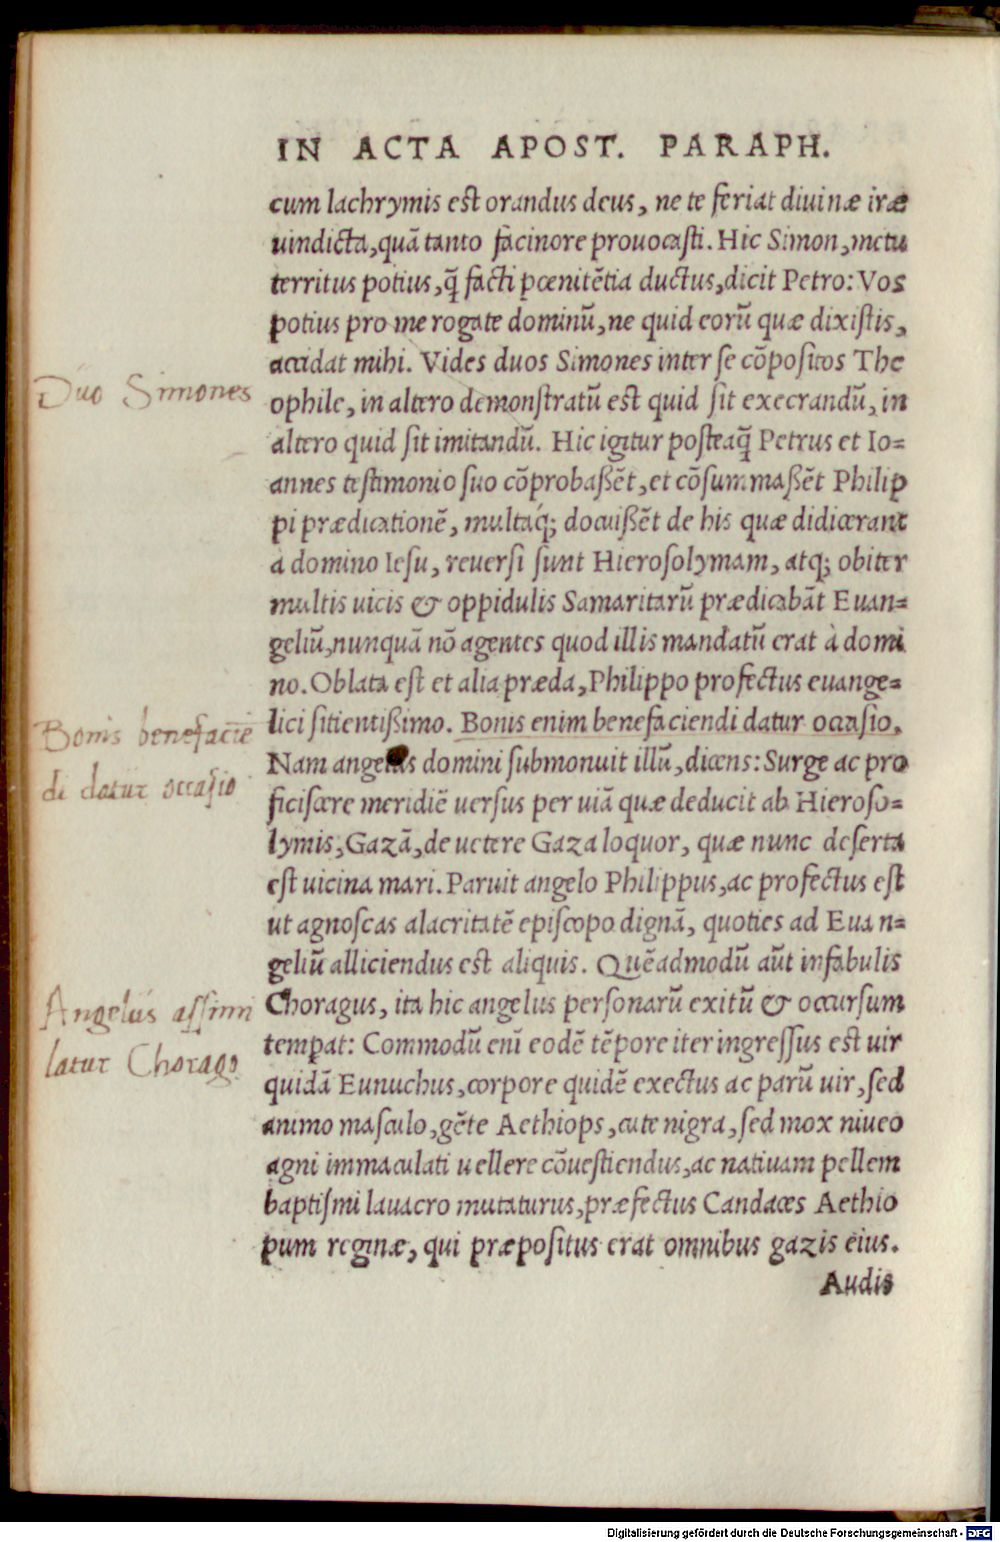 IN ACTA APOST. PARAPH.
cum lachrymis est orandus deus, ne te feriat diuinæ iræ
uindicta, quā tanto facinore prouocasti. Hic Simon, metu
territus potius, q̄ facti pœnitētia ductus, dicit Petro: Vos
potius pro me rogate dominū, ne quid eorū quæ dixistis,
accidat mihi. Vides duos Simones inter se cōpositos The
Duo Simones
ophile, in altero demonstratū est quid sit execrandū, in
altero quid sit imitandū. Hic igitur posteaq̄ Petrus et Io=
annes testimonio suo cōprobaßēt, et cōsummaßēt Philip
pi prædicationē, multaq́; docuißēt de his quæ didicerant
a domino Iesu, reuersi sunt Hierosolymam, atq; obiter
multis uicis & oppidulis Samaritarū prædicabāt Euan=
geliū, nunquā nō agentes quod illis mandatū erat à domi
no. Oblata est et alia præda, Philippo profectus euange=
lici sitientißimo. Bonis enim benefaciendi datur occasio.
Bonis benefaciē
di datur occasio
Nam angelus domini submonuit illū, dicens: Surge ac pro
ficiscere meridiē uersus per uiā quæ deducit ab Hieroso=
lymis, Gazā, de uetere Gaza loquor, quæ nunc deserta
est uicina mari. Paruit angelo Philippus, ac profectus est
ut agnoscas alacritatē episcopo dignā, quoties ad Euan=
geliū alliciendus est aliquis. Quēadmodū aūt in fabulis
Choragus, ita hic angelus personarū exitū & occursum
Angelus assimi
latur Chorago
temperat: Commodū enī eodē tēpore iter ingressus est uir
quidā Eunuchus, corpore quidē exectus ac parū uir, sed
animo masculo, gēte Aethiops, cute nigra, sed mox niueo
agni immaculati uellere cōuestiendus, ac natiuam pellem
baptismi lauacro mutaturus, præfectus Candaces Aethio
pum reginæ, qui præpositus erat omnibus gazis eius.
Audis
Digitalisierung gefördert durch die Deutsche Forschungsgemeinschaft - DFG